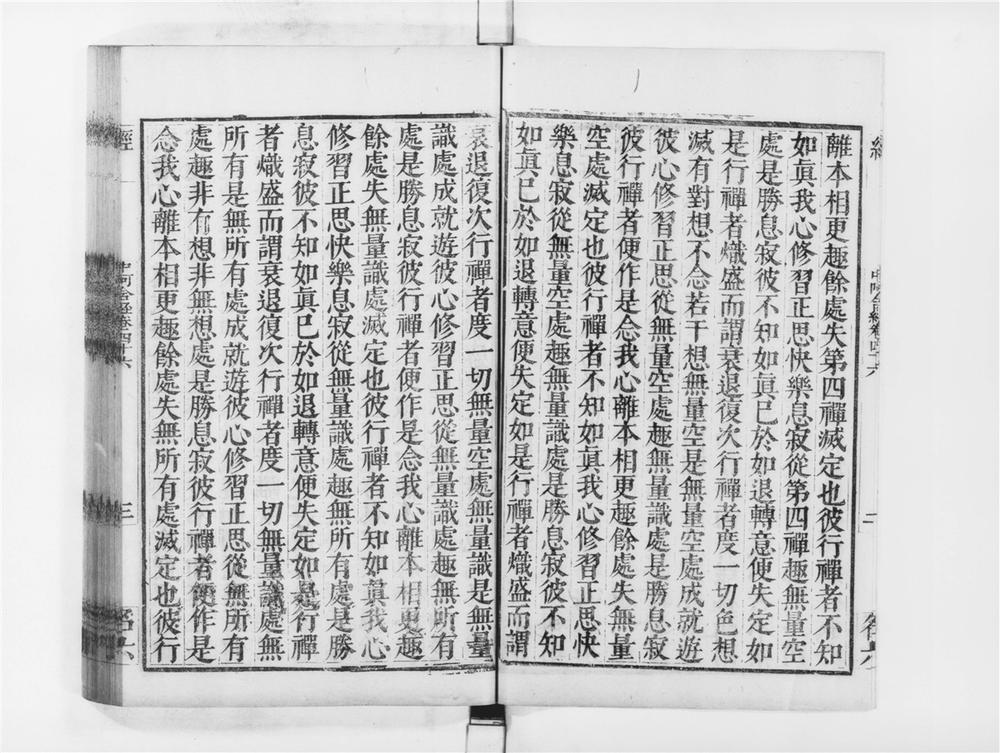 離本相更趣餘處失第四禪滅定也彼行禪者不知
如眞我心修習正思快樂息寂從第四禪趣無量空
處是勝息寂彼不知如眞已於如退轉意便失定如
是行禪者熾盛而謂衰退復次行禪者度一切色想
滅有對想不念若干想無量空是無量空處成就遊
彼心修習正思從無量空處趣無量識處是勝息寂
彼行禪者便作是念我心離本相更趣餘處失無量
空處滅定也彼行禪者不知如眞我心修習正思快
樂息寂從無量空處趣無量識處是勝息寂彼不知
如眞已於如退轉意便失定如是行禪者熾盛而謂
衰退復次行禪者度一切無量空處無量識是無量
識處成就遊彼心修習正思從無量識處趣無所有
處是勝息寂彼行禪者便作是念我心離本相更趣
餘處失無量識處滅定也彼行禪者不知如眞我心
修習正思快樂息寂從無量識處趣無所有處是勝
息寂彼不知如眞已於如退轉意便失定如是行禪
者熾盛而謂衰退復次行禪者度一切無量識處無
所有是無所有處成就遊彼心修習正思從無所有
處趣非有想非無想處是勝息寂彼行禪者便作是
念我心離本相更趣餘處失無所有處滅定也彼行
經 中阿含經卷四十六 三